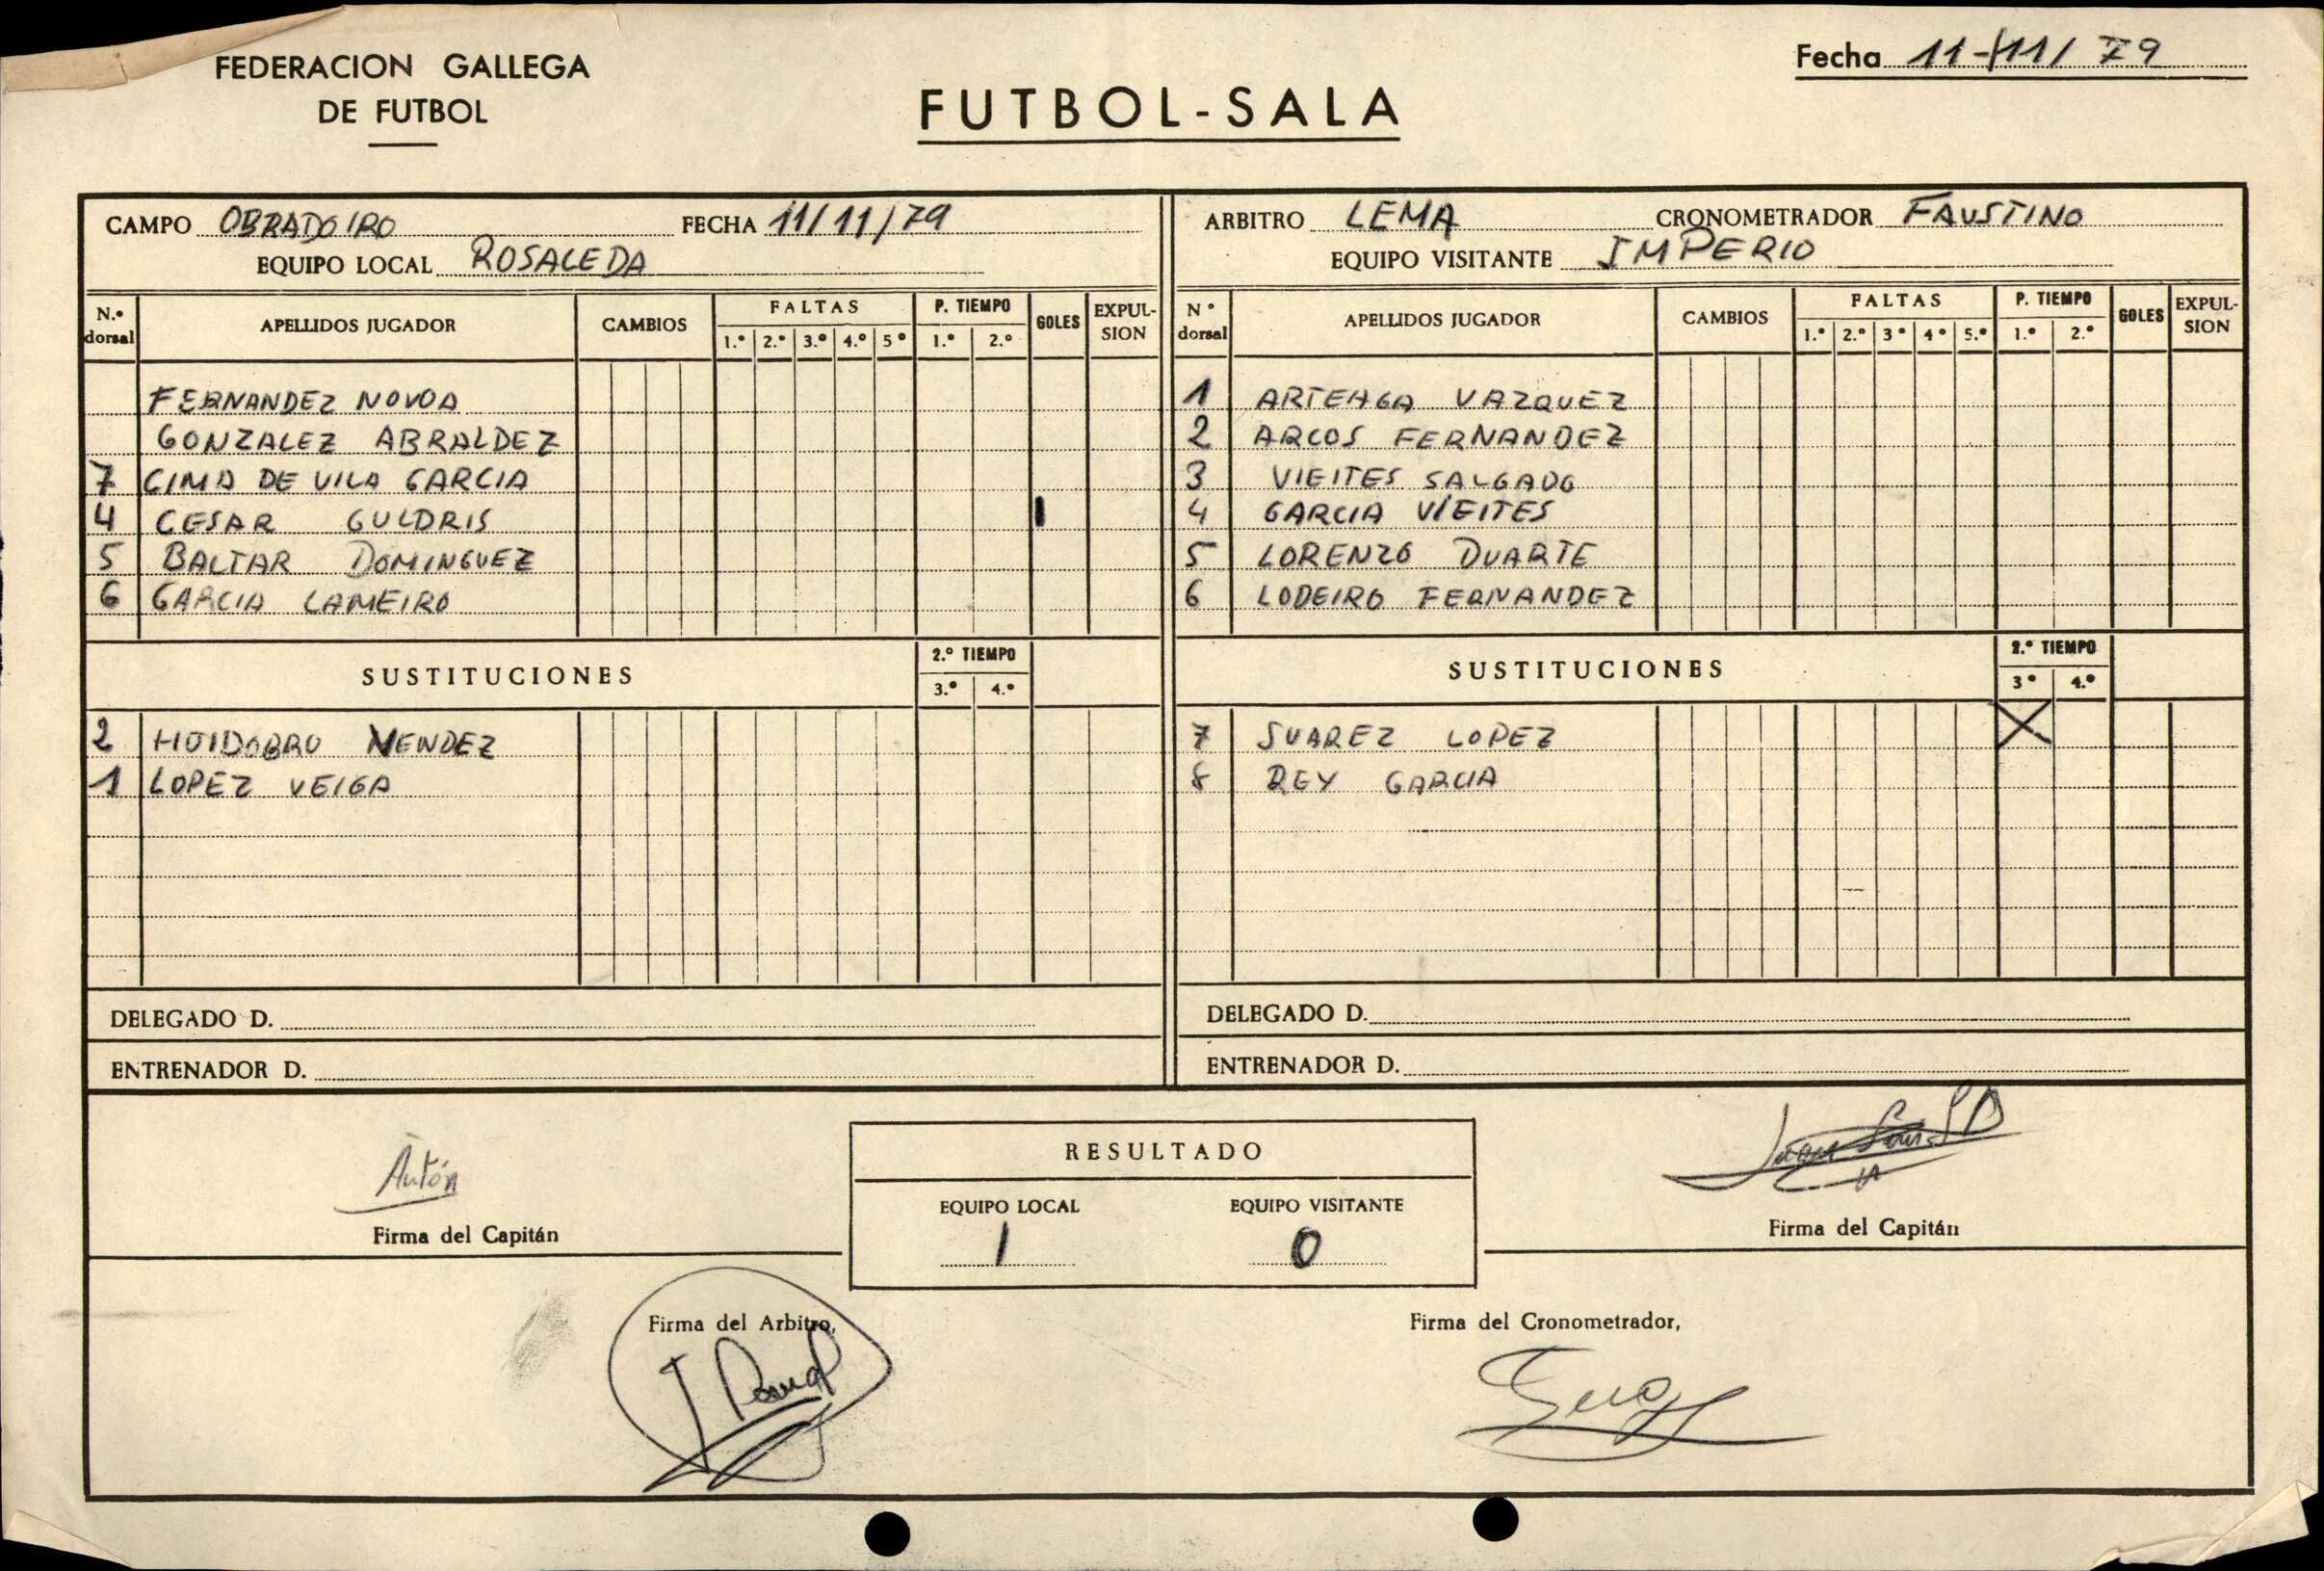 FEDERACION GALLEGA
DE FUTBOL
FUTBOL-SALA
Fecha 11-11/79
CAMPO OBRADOIRO FECHA 11/11/79
EQUIPO LOCAL ROSALEDA
N.º dorsal APELLIDOS JUGADOR CAMBIOS FALTAS 1.º 2.º 3.º 4.º 5º P. TIEMPO 1.º 2.º GOLES EXPULSION
FERNANDEZ NOVOA
GONZALEZ ABRALDEZ
7 CIMA DE VILA GARCIA
4 CESAR GULDRIS I
5 BALTAR DOMINGUEZ
6 GARCIA LAMEIRO
SUSTITUCIONES 2.º TIEMPO 3.º 4.º
2 HUIDOBRO MENDEZ
1 LOPEZ VEIGA
DELEGADO D.
ENTRENADOR D.
ARBITRO LEMA CRONOMETRADOR FAUSTINO
EQUIPO VISITANTE IMPERIO
Nº dorsal APELLIDOS JUGADOR CAMBIOS FALTAS 1.º 2.º 3º 4º 5.º P. TIEMPO 1.º 2.º GOLES EXPULSION
1 ARTEAGA VAZQUEZ
2 ARCOS FERNANDEZ
3 VIEITES SALGADO
4 GARCIA VIEITES
5 LORENZO DUARTE
6 LODEIRO FERNANDEZ
SUSTITUCIONES 2.º TIEMPO 3º 4.º
7 SUAREZ LOPEZ X
8 REY GARCIA
DELEGADO D.
ENTRENADOR D.
Antón
Firma del Capitán
RESULTADO
EQUIPO LOCAL EQUIPO VISITANTE
1 0
Firma del Capitán
Firma del Arbitro,
Firma del Cronometrador,